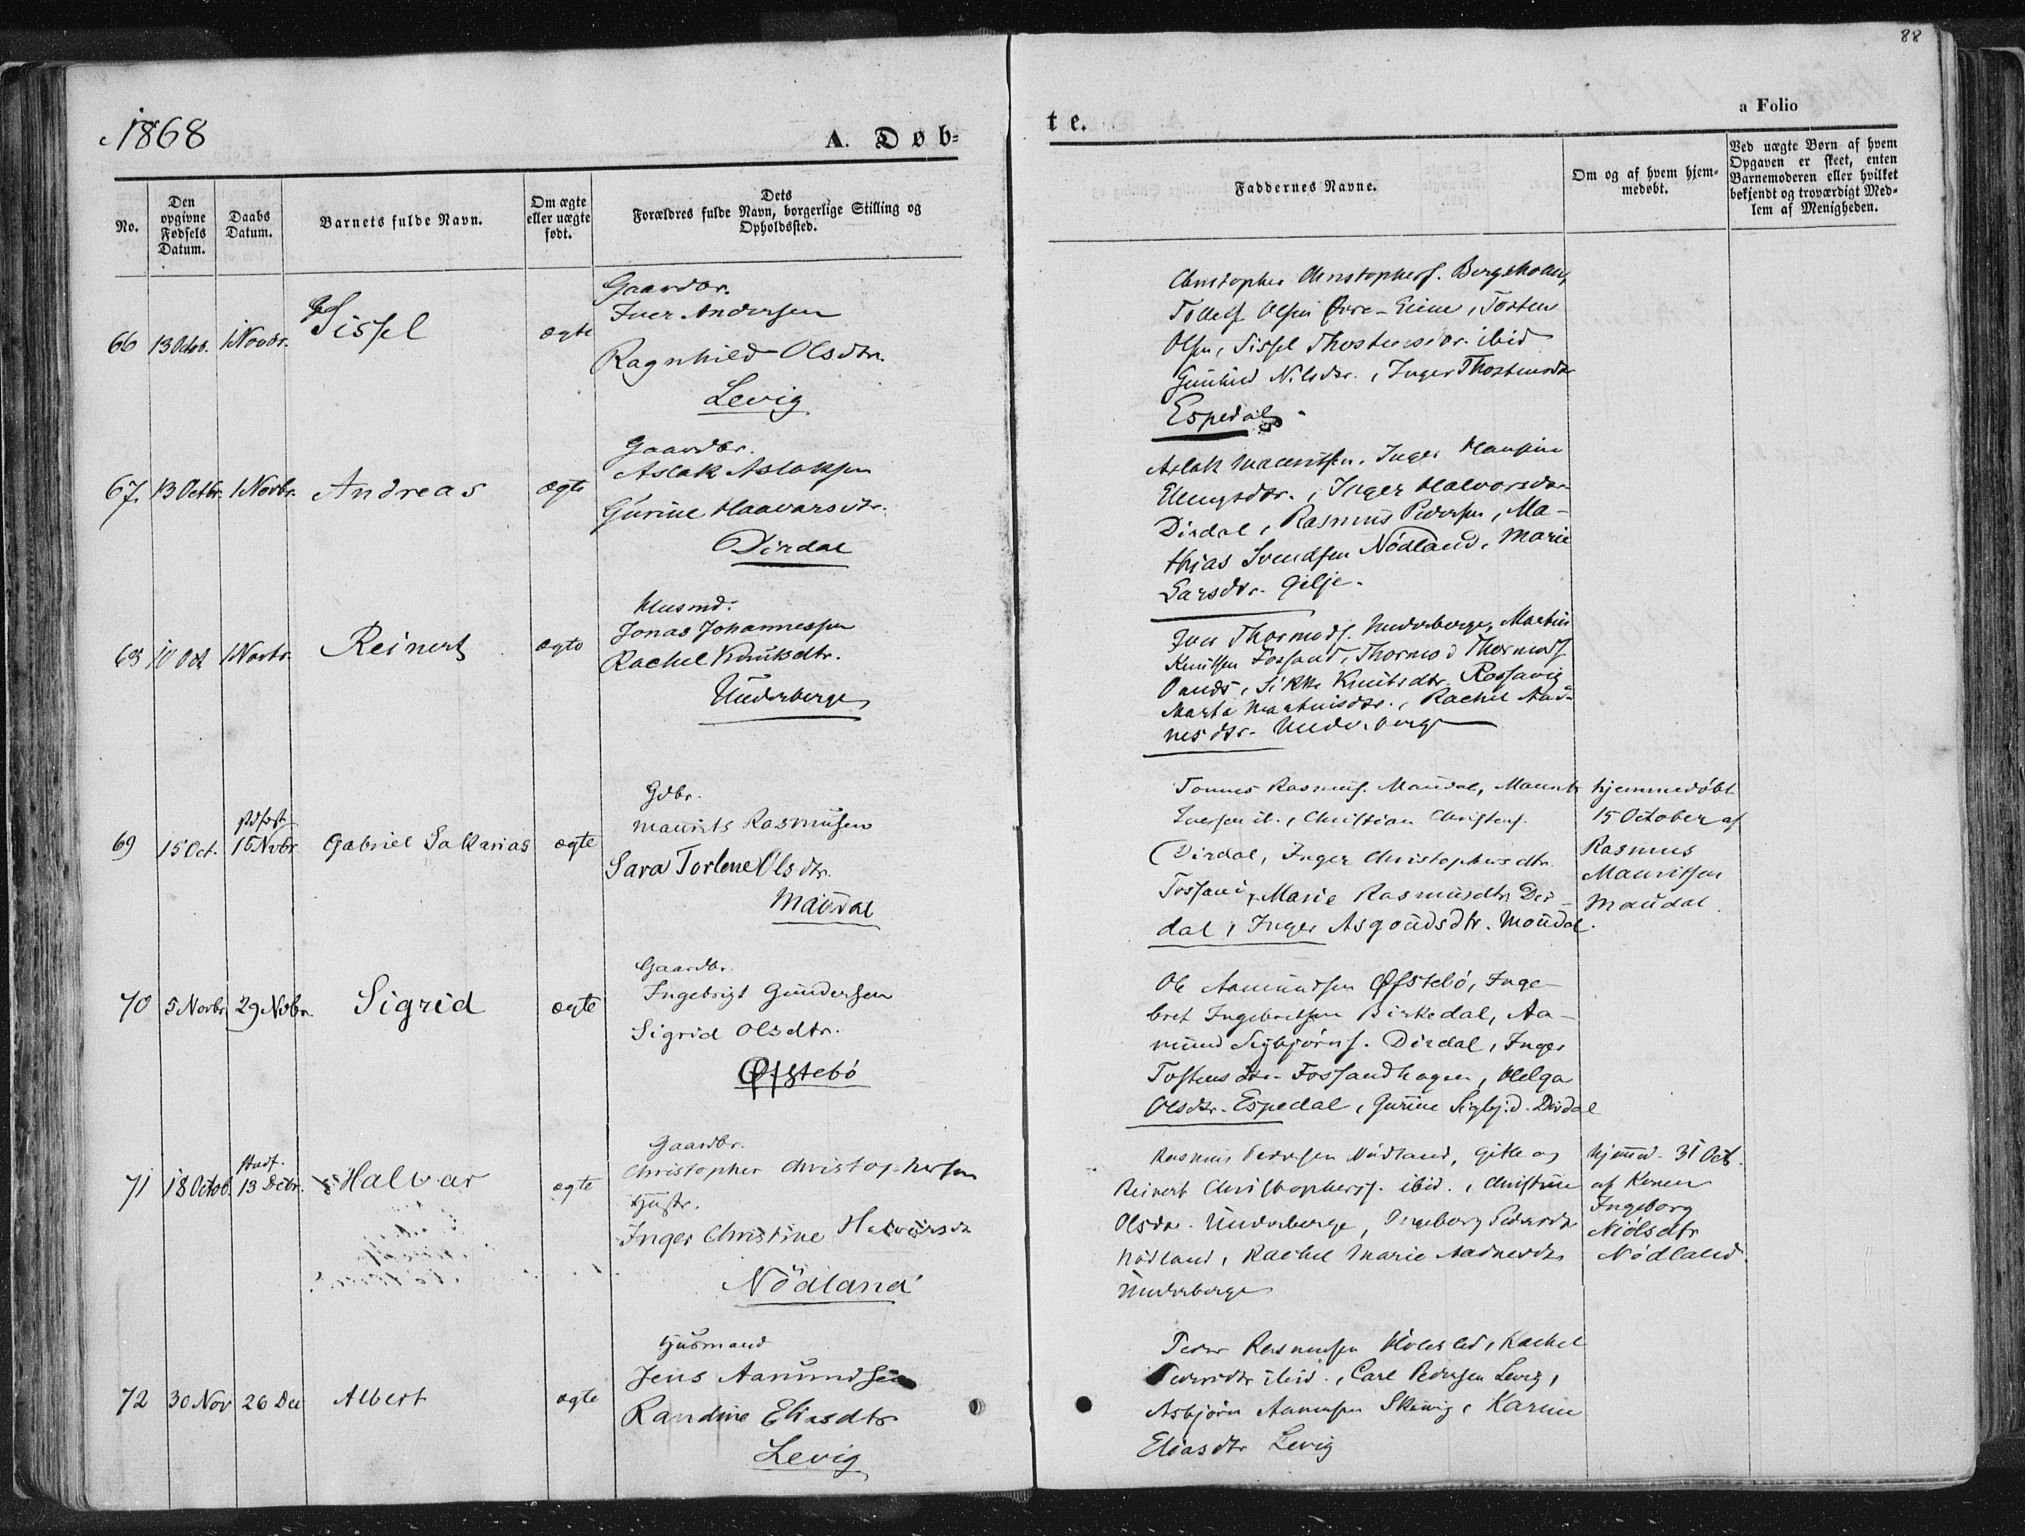 88
1868
A. Døb=
te.
a Folio
No.
Den opgivne Fødsels Datum.
Daabs Datum.
Barnets fulde Navn.
Om ægte eller uægte født.
Dets Forældres fulde Navn, borgerlige Stilling og Opholdssted.
Faddernes Navne.
Om og af hvem hjem-
medøbt.
Ved uægte Børn af hvem
Opgaven er skeet, enten
Barnemoderen eller hvilket
bekjendt og troværdigt Med-
lem af Menigheden.
66 13 Octob. 1 Novbr. Sissel ægte
Gaardbr.
Iver Andersen
Ragnhild Olsdtr.
Levig
Christopher Christophers. Bergeholen,
Tollef Olsen Øvre-Eiene, Tosten
Olsen, Sissel Thostensdtr. ibid
Gunhild Nilsdtr., Inger Thostensdtr
Espedal.
67 13 Octbr. 1 Novbr. Andreas ægte
Gaardbr.
Aslak Aslaksen
Gurine Haavarsdtr.
Dirdal
Aslak Mauritsen, Inger Hansine
Ellingsdtr., Inger Halvorsdtr.
Dirdal, Rasmus Pedersen, Ma-
thias Svendsen Nødland, Marie
Larsdtr. Gilje.
68 10 Oct 1 Novbr. Reinert ægte
Husmd.
Jonas Johannessen
Rachel Knutsdtr.
Underberge
Iver Thormods. Underberge, Martin
Knutsen Fossand, Thormod Thormods
Sikke Knutsdtr. Rossavig
Marta Martinsdtr., Rachel Aad-
nesdtr. Underberge
69 15 Oct. stadfæst 15 Novbr Gabriel Sakarias ægte
Gdbr.
Maurits Rasmusen
Sara Torlene Olsdtr.
Maudal
Tonnes Rasmus. Maudal, Maurits
Iversen ib., Christian Christens.
Dirdal, Inger Christophersdtr.
Fossand, Marie Rasmusdtr. Dir-
dal, Inger Asgoudsdtr. Moudal.
hjemmedøbt
15 October af
Rasmus
Mauritsen
Maudal.
70 5 Novbr 29 Novbr. Sigrid ægte
Gaardbr.
Ingebrigt Gundersen
Sigrid Olsdtr.
Øfstebø
Ole Aamundsen Øfstebø, Inge-
bret Ingebretsen Birkedal, Aa-
mund Sigbjørns. Dirdal, Inger
Tostensdtr. Fossandhagen, Helga
Olsdtr. Espedal, Gurine Sigbj.d. Dirdal
71 18 Octob. stadf. 13 Decbr. Halvar ægte
Gaardbr.
Christopher Christophersen
Hustr.
Inger Christine Halvorsdtr
Nödland
Rasmus Pedersen Nødland, Gitle og
Reinert Christophers. ibid., Christine
Olsdtr. Underberge, Ingeborg Pedersdtr
Nødland, Rachel Marie Aadnesdtr
Underberge
hjemd. 31 Oct.
af Konen
Ingeborg
Niólsdtr
Nødland.
72 30 Nov 26 Dec Albert ægte
Husmand
Jens Aamundsen
Randine Eliasdtr
Levig
Peder Rasmusen Helesled, Rachel
Pedersdtr ibid., Carl Pedersen Levig,
Asbjørn Aamunsen Skevig, Karine
Eliasdtr Levig